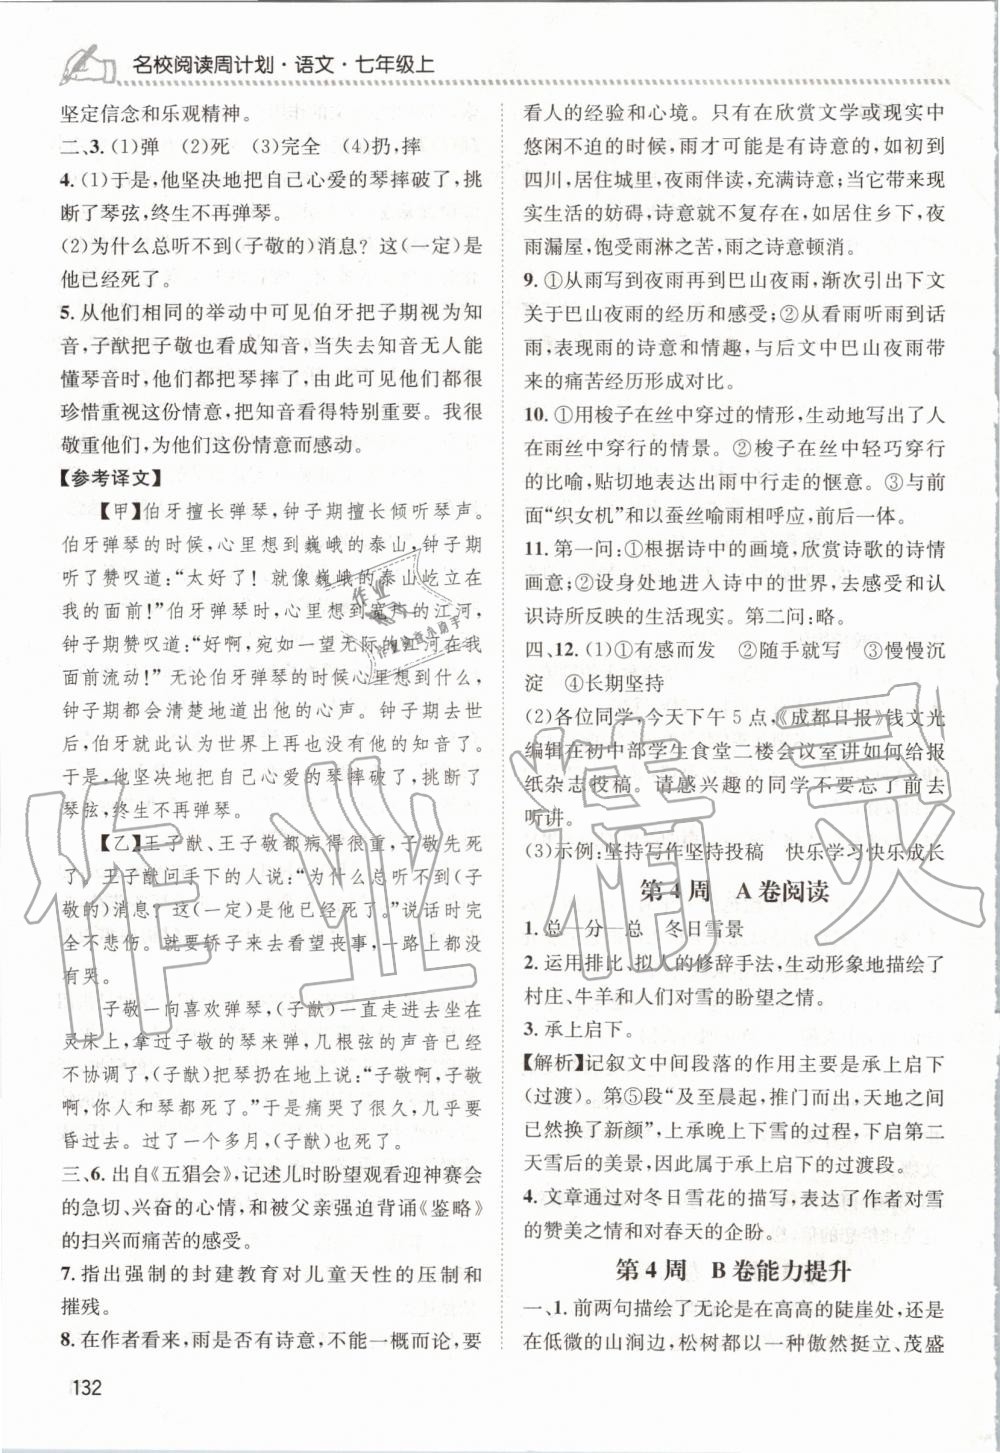 名校阅读周计划·语文·七年级上
坚定信念和乐观精神。
二、3. (1)弹　(2)死　(3)完全　(4)扔,摔
4. (1)于是,他坚决地把自己心爱的琴摔破了,挑
断了琴弦,终生不再弹琴。
(2)为什么总听不到(子敬的)消息? 这(一定)是
他已经死了。
5. 从他们相同的举动中可见伯牙把子期视为知
音,子猷把子敬也视为知音,当失去知音无人能
懂琴音时,他们都把琴摔了,由此可见他们都很
珍惜重视这份情意,把知音看得特别重要。我很
敬重他们,为他们这份情意而感动。
【参考译文】
【甲】伯牙擅长弹琴,钟子期擅长倾听琴声。
伯牙弹琴的时候,心里想到巍峨的泰山,钟子期
听了赞叹道:“太好了! 就像巍峨的泰山屹立在
我的面前!”伯牙弹琴时,心里想到宽广的江河,
钟子期赞叹道:“好啊,宛如一望无际的江河在我
面前流动!”无论伯牙弹琴的时候心里想到什么,
钟子期都会清楚地道出他的心声。钟子期去世
后,伯牙就此认为世界上再也没有他的知音了。
于是,他坚决地把自己心爱的琴摔破了,挑断了
琴弦,终生不再弹琴。
【乙】王子猷、王子敬都病得很重,子敬先死
了。王子猷问手下的人说:“为什么总听不到(子
敬的)消息? 这(一定)是他已经死了。”说话时完
全不悲伤。就要轿子来去看望丧事,一路上都没
有哭。
子敬一向喜欢弹琴,(子猷)一直走进去坐在
灵床上,拿过子敬的琴来弹,几根弦的声音已经
不协调了,(子猷)把琴扔在地上说:“子敬啊,子敬
啊,你人和琴都死了。”于是痛哭了很久,几乎要
昏过去。过了一个多月,(子猷)也死了。
三、6. 出自《五猖会》,记述儿时盼望观看迎神赛会
的急切、兴奋的心情,和被父亲强迫背诵《鉴略》
的扫兴而痛苦的感受。
7. 指出强制的封建教育对儿童天性的压制和
摧残。
8. 在作者看来,雨是否有诗意,不能一概而论,要
132
看人的经验和心境。只有在欣赏文学或现实中
悠闲不迫的时候,雨才可能是有诗意的,如初到
四川,居住城里,夜雨伴读,充满诗意;当它带来现
实生活的妨碍,诗意就不复存在,如居住乡下,夜
雨漏屋,饱受雨淋之苦,雨之诗意顿消。
9. ①从雨写到夜雨再到巴山夜雨,渐次引出下文
关于巴山夜雨的经历和感受;②从看雨听雨到话
雨,表现雨的诗意和情趣,与后文中巴山夜雨带
来的痛苦经历形成对比。
10. ①用梭子在丝中穿过的情形,生动地写出了人
在雨丝中穿行的情景。②梭子在丝中轻巧穿行
的比喻,贴切地表达出雨中行走的惬意。③与前
面“织女机”和以蚕丝喻雨相呼应,前后一体。
11. 第一问:①根据诗中的画境,欣赏诗歌的诗情
画意;②设身处地进入诗中的世界,去感受和认
识诗所反映的生活现实。第二问:略。
四、12. (1)①有感而发　②随手就写　③慢慢沉
淀　④长期坚持
(2)各位同学,今天下午5点,《成都日报》钱文光
编辑在初中部学生食堂二楼会议室讲如何给报
纸杂志投稿。请感兴趣的同学不要忘了前去
听讲。
(3)示例:坚持写作坚持投稿　快乐学习快乐成长
第4周　A卷阅读
1. 总—分—总　冬日雪景
2. 运用排比、拟人的修辞手法,生动形象地描绘了
村庄、牛羊和人们对雪的盼望之情。
3. 承上启下。
【解析】记叙文中间段落的作用主要是承上启下
(过渡)。第⑤段“及至晨起,推门而出,天地之间
已然换了新颜”,上承晚上下雪的过程,下启第二
天雪后的美景,因此属于承上启下的过渡段。
4. 文章通过对冬日雪花的描写,表达了作者对雪
的赞美之情和对春天的企盼。
第4周　B卷能力提升
一、1. 前两句描绘了无论是在高高的陡崖处,还是
在低微的山涧边,松树都以一种傲然挺立、茂盛
作业精灵